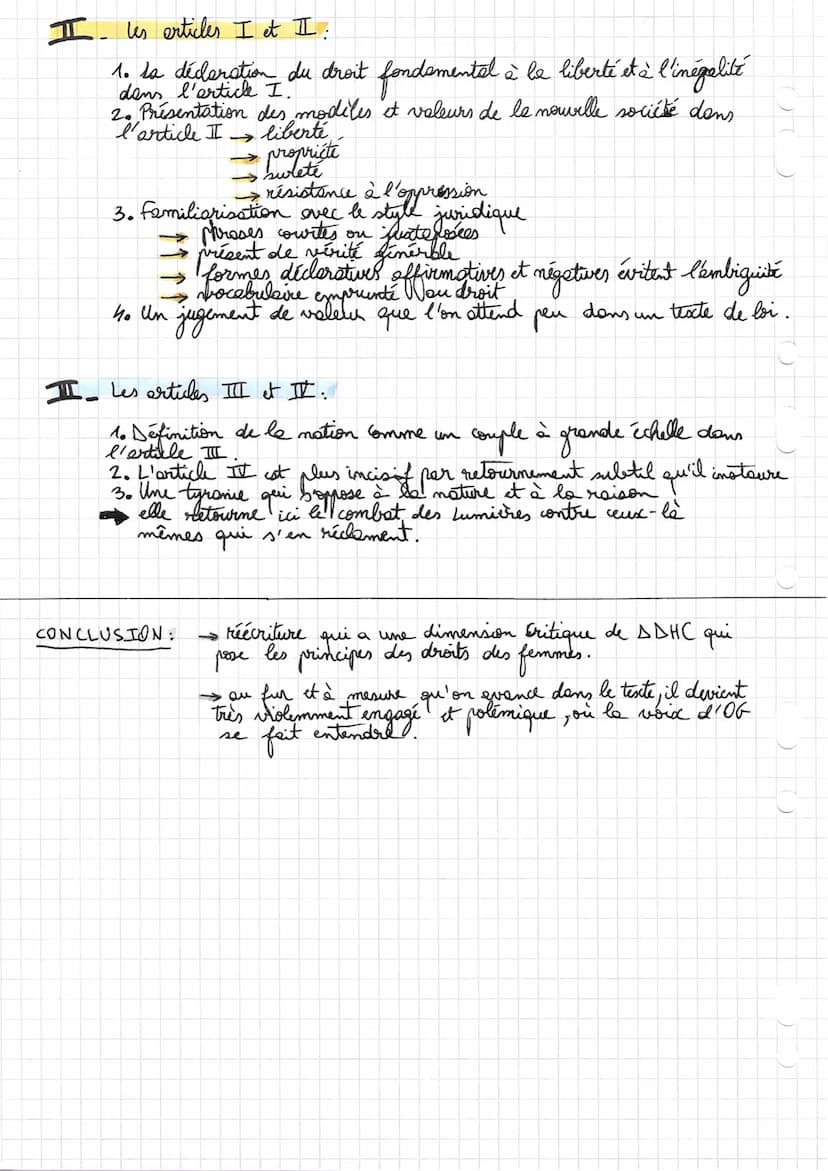 II_ Les articles I et II :
1. La déclaration du droit fondamental à la liberté et à l'inégalité
dans l'article I.
2. Présentation des modèles et valeurs de la nouvelle société dans
l'article II → liberté
→ propriété
→ sureté
→ résistance à l'oppression
3. Familiarisation avec le style juridique
→ phrases courtes ou juxtaposées
→ présent de vérité générale
→ formes déclaratives affirmatives et négatives évitent l'ambiguité
→ vocabulaire emprunté au droit
4. Un jugement de valeur que l'on attend peu dans un texte de loi.
II_ Les articles III et IV :
1. Définition de la nation comme un couple à grande échelle dans
l'article III.
2. L'article IV est plus incisif par retournement subtil qu'il instaure
3. Une tyranie qui s'oppose à la nature et à la raison
→ elle retourne ici le combat des Lumières contre ceux-là
mêmes qui s'en réclament.
CONCLUSION : → réécriture qui a une dimension critique de DDHC qui
pose les principes des droits des femmes.
→ au fur et à mesure qu'on avance dans le texte, il devient
très violemment engagé et polémique, où la voix d'OG
se fait entendre.